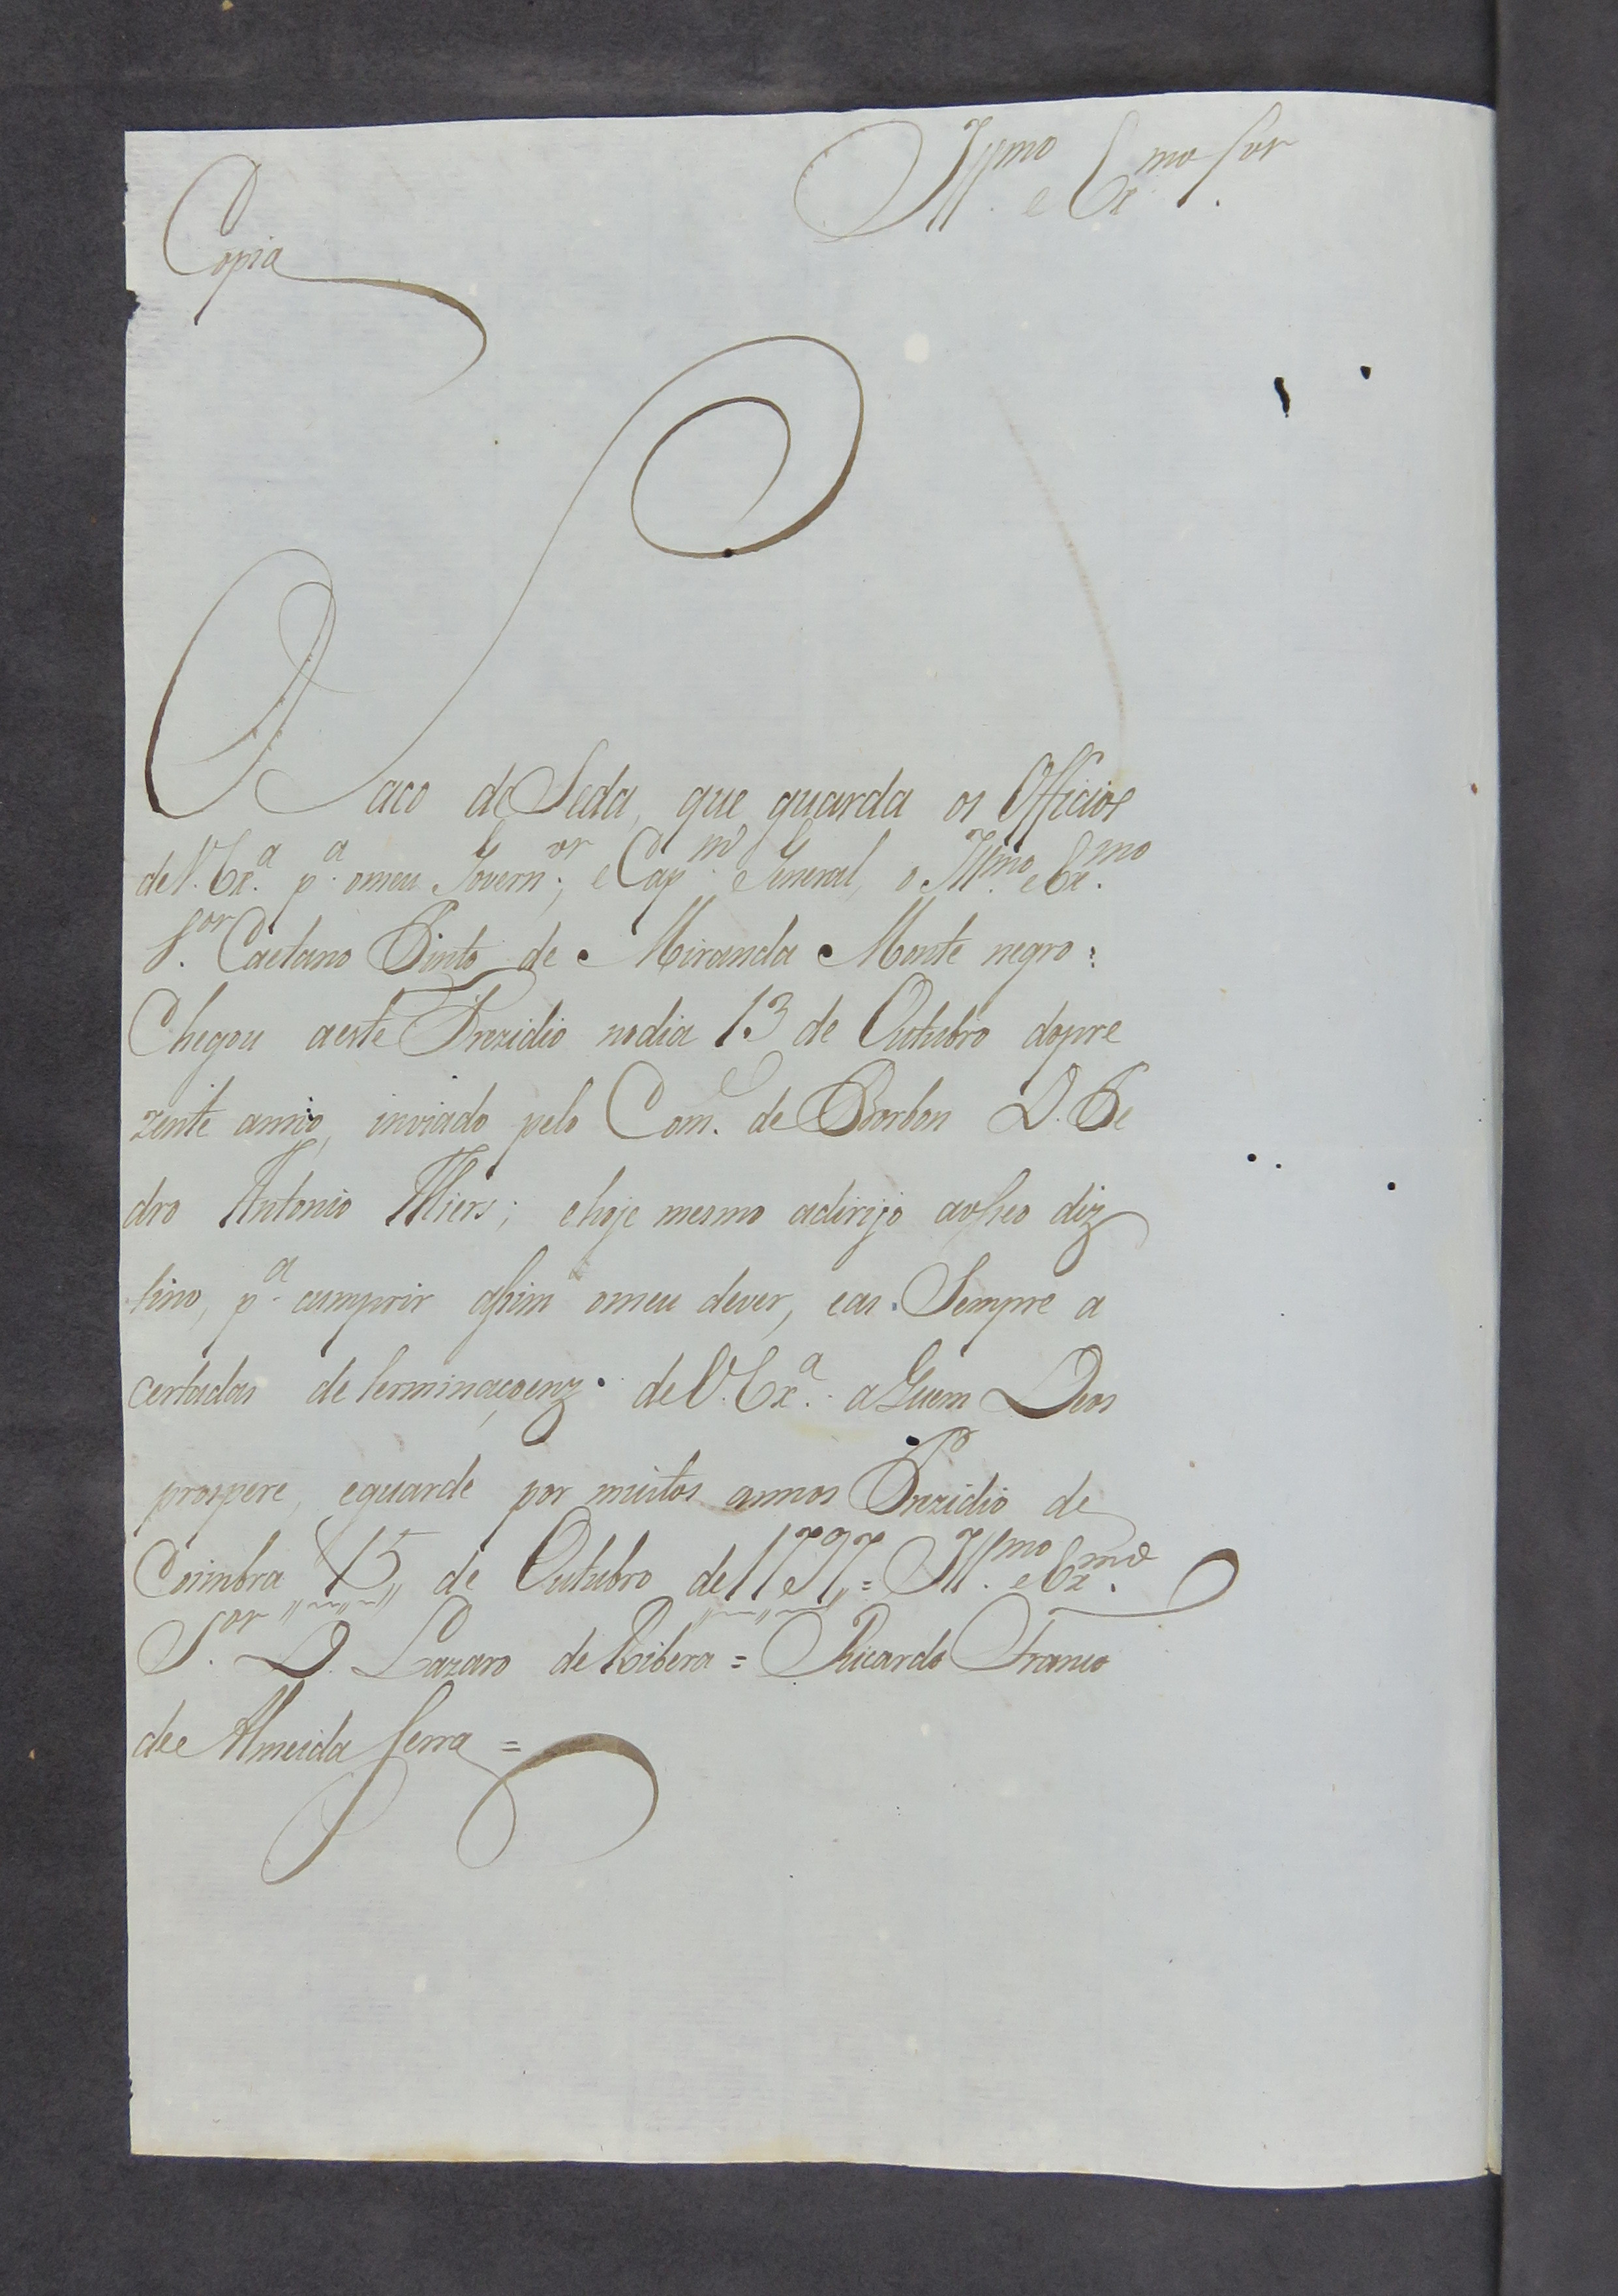 Ill.mo e Ex.mo Sor
Copia
Saco de Seda, que guarda os Officios
de V. Ex.a p.a omeu Govern.or; e Cap.m General, o Ill.mo e Ex.mo
S.or Caetano Pinto de Miranda Monte negro:
Chegou aeste Prezidio nodia 13 de Outubro dopre
zente anno, inviado pelo Com. de Borbon D. Pe
dro Antonio Miers; ehoje mesmo adirijo aosseo diz
tino, p.a cumprir assim omeu dever, eas Sempre a
certadas de terminaçoenz de V. Ex.a aQuem Deos
prospere, eguarde por muitos annos Prezidio de
Coimbra 15,, de Outubro de 1797,, = Ill.mo e Ex.mo
S.or D. Lazaro de Ribera = Ricardo Franco
de Almeida Serra =